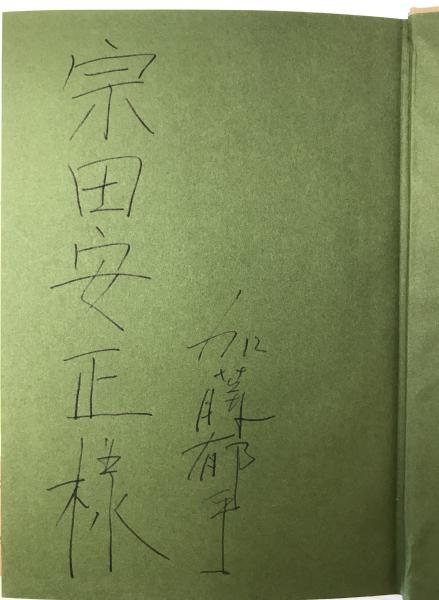 宗田安正様
加藤郁乎